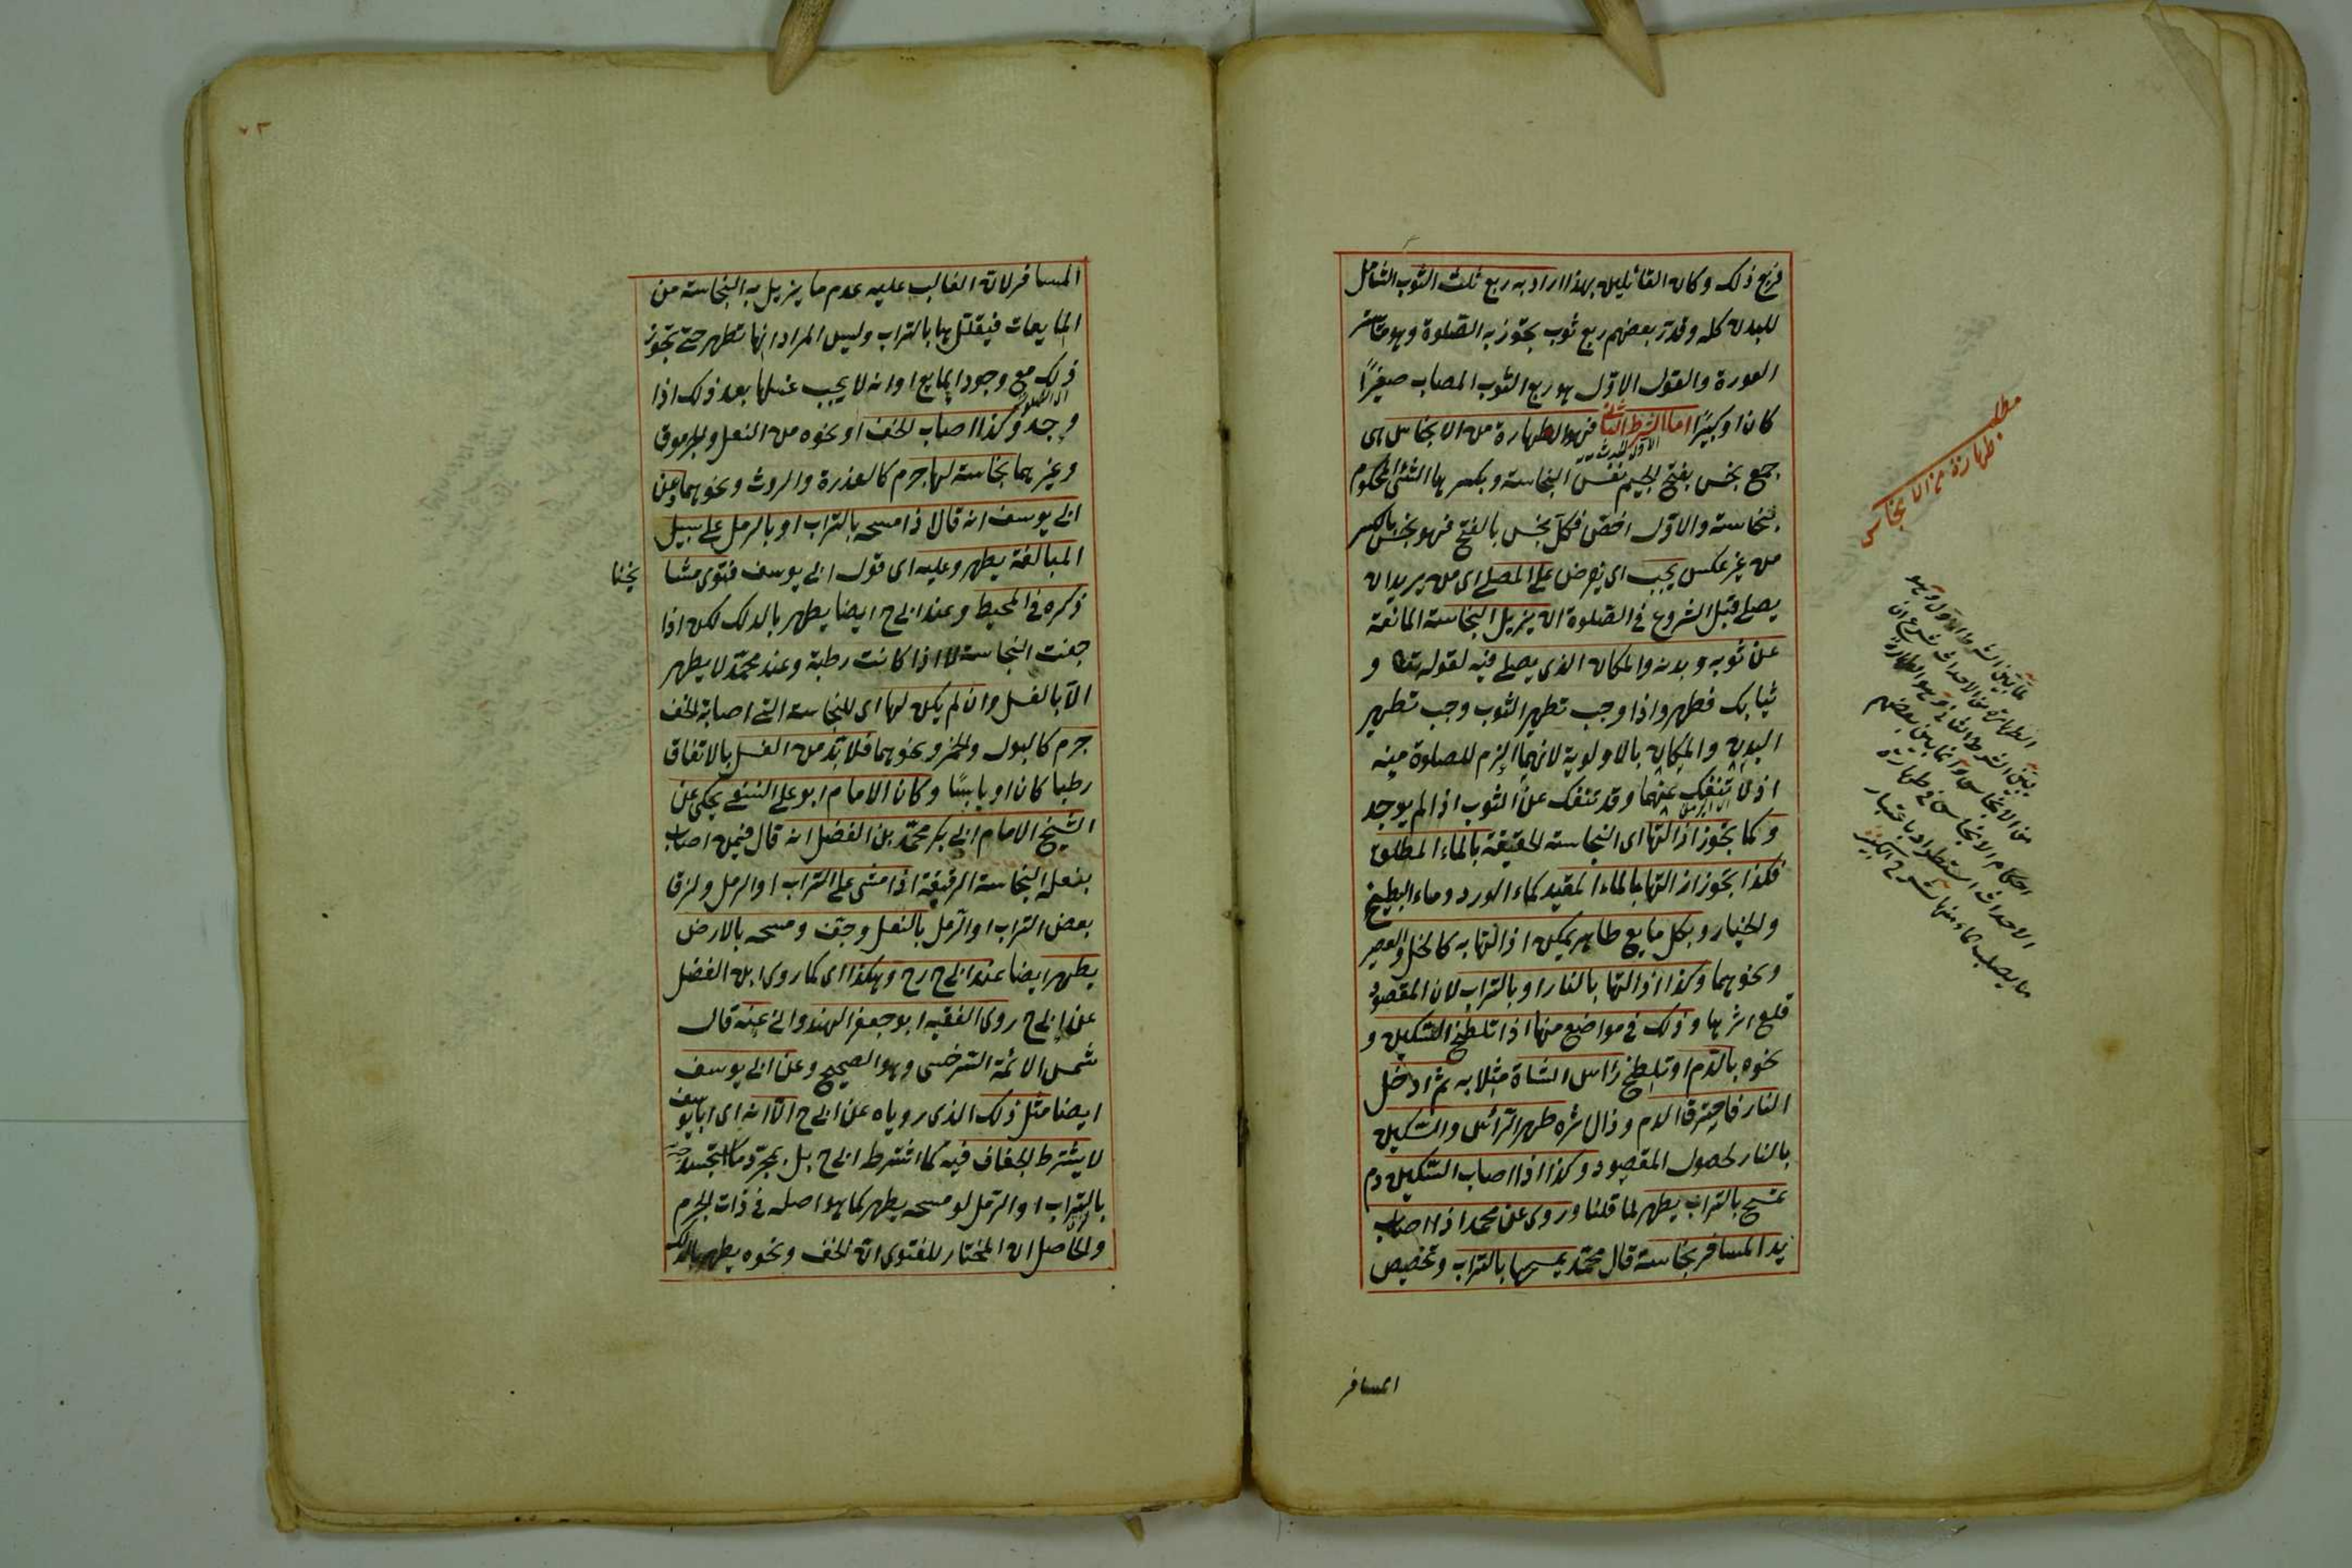 فربع ذلك وكان القائلين بهذا اراد به ربع ثلث الثوب الشامل
للبدن كله وقدر بعضهم ربع ثوب يجوز به الصلوة وهو ساتر
العورة والقول الاول هو ربع الثوب المصاب صغيرًا
كان او كبيرًا اما الشرط الثانى فهو الطهارة من الانجاس هى
جمع نجس بفتح الجيم نفس النجاسة وبكسرها الشئ المحكوم
بنجاسته والاول اخص فكل نجس بالفتح فهو نجس بالكسر
من غير عكس يجب اى يفرض على المصلى اى من يريد ان
يصلى قبل الشروع فى الصلوة ان يزيل النجاسة المانعة
عن ثوبه وبدنه والمكان الذى يصلى فيه لقوله تعا و
ثيابك فطهر واذا وجب تطهير الثوب وجب تطهير
البدن والمكان بالاولوية لانهما الزم للصلوة منه
اذ لا تنفك عنهما وقد تنفك عن الثوب اذا لم يوجد
وكما يجوز ازالتها اى النجاسة الحقيقة بالماء المطلق
فكذا يجوز ازالتها بالماء المقيد كماء الورد وماء البطيخ
والخيار وبكل مايع طاهر يمكن ازالتها به كالخل والعصير
ونحوهما وكذا ازالتها بالنار او بالتراب لان المقصود
قلع اثرها وذلك فى مواضع منها اذا تلطخ السكين و
نحوه بالدم او تلطخ رأس الشاة مثلا به ثم ادخل
النار فاحترق الدم وزال اثره طهر الرأس والسكين
بالنار لحصول المقصود وكذا اذا اصاب السكين دم
يمسح بالتراب يطهر لما قلنا وروى عن محمد اذا اصاب
يد المسافر نجاسة قال محمد يمسحها بالتراب وتخصيص
المسافر
مطلب
طهارة من الانجاس
لما بين الشرط الاول وهو
الطهارة من الاحداث شرع ان
يبين الشرط الثانى وهو الطهارة
من الانجاس وانما بين بعضهم
احكام الانجاس فى طهارة
الاحداث استطرادا باعتبار
المسافر لان الغالب عليه عدم ما يزيل به النجاسة من
المايعات فيقللها بالتراب وليس المراد انها تطهر حتى تجوز
ذلك مع وجود المايع او انه لا يجب غسلها بعد ذلك اذا
وجد وكذا اصاب الخف او نحوه من النعل والجرموق
وغيرهما نجاسة لها جرم كالعذرة والروث ونحوهما وعن
ابى يوسف انه قال اذا مسحه بالتراب او بالرمل على سبيل
المبالغة يطهر وعليه اى قول ابى يوسف فتوى مشا
يخنا
ذكره فى المحيط وعند ابى ح ايضا يطهر بالدلك لكن اذا
جفت النجاسة لا اذا كانت رطبة وعند محمد لا يطهر
الا بالغسل وان لم يكن لها اى للنجاسة التى اصابة الخف
جرم كالبول والخمر ونحوهما فلا بد من الغسل بالاتفاق
رطبا كان او يابسًا وكان الامام ابو على النسفى يحكى عن
الشيخ الامام ابى بكر محمد بن الفضل انه قال فيمن اصاب
بنعله النجاسة الرقيقة اذا مشى على التراب او الرمل ولزقا
بعض التراب او الرمل بالنعل وجف ومسحه بالارض
يطهر ايضا عند ابى ح رح وهكذا اى كما روى ابن الفضل
عن ابى ح روى الفقيه ابو جعفر الهندوانى عنه قال
شمس الائمة السرخسى وهو الصحيح وعن ابى يوسف
ايضا مثل ذلك الذى روياه عن ابى ح الا انه اى ابا يوسف
لا يشترط الجفاف فيه كما اشترطه ابى ح بل بمجرد ما
بالتراب او الرمل لو مسحه يطهر كما هو اصله فى ذات الجرم
والحاصل ان المختار للفتوى ان الخف ونحوه يطهر بالدلك